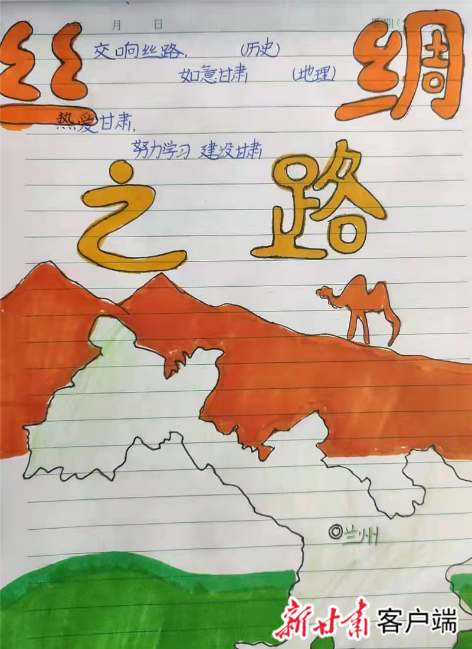 月 日
丝 绸
交响丝路, (历史)
如意甘肃 (地理)
热爱甘肃,
努力学习 建设甘肃
之 路
兰州
新甘肃 客户端